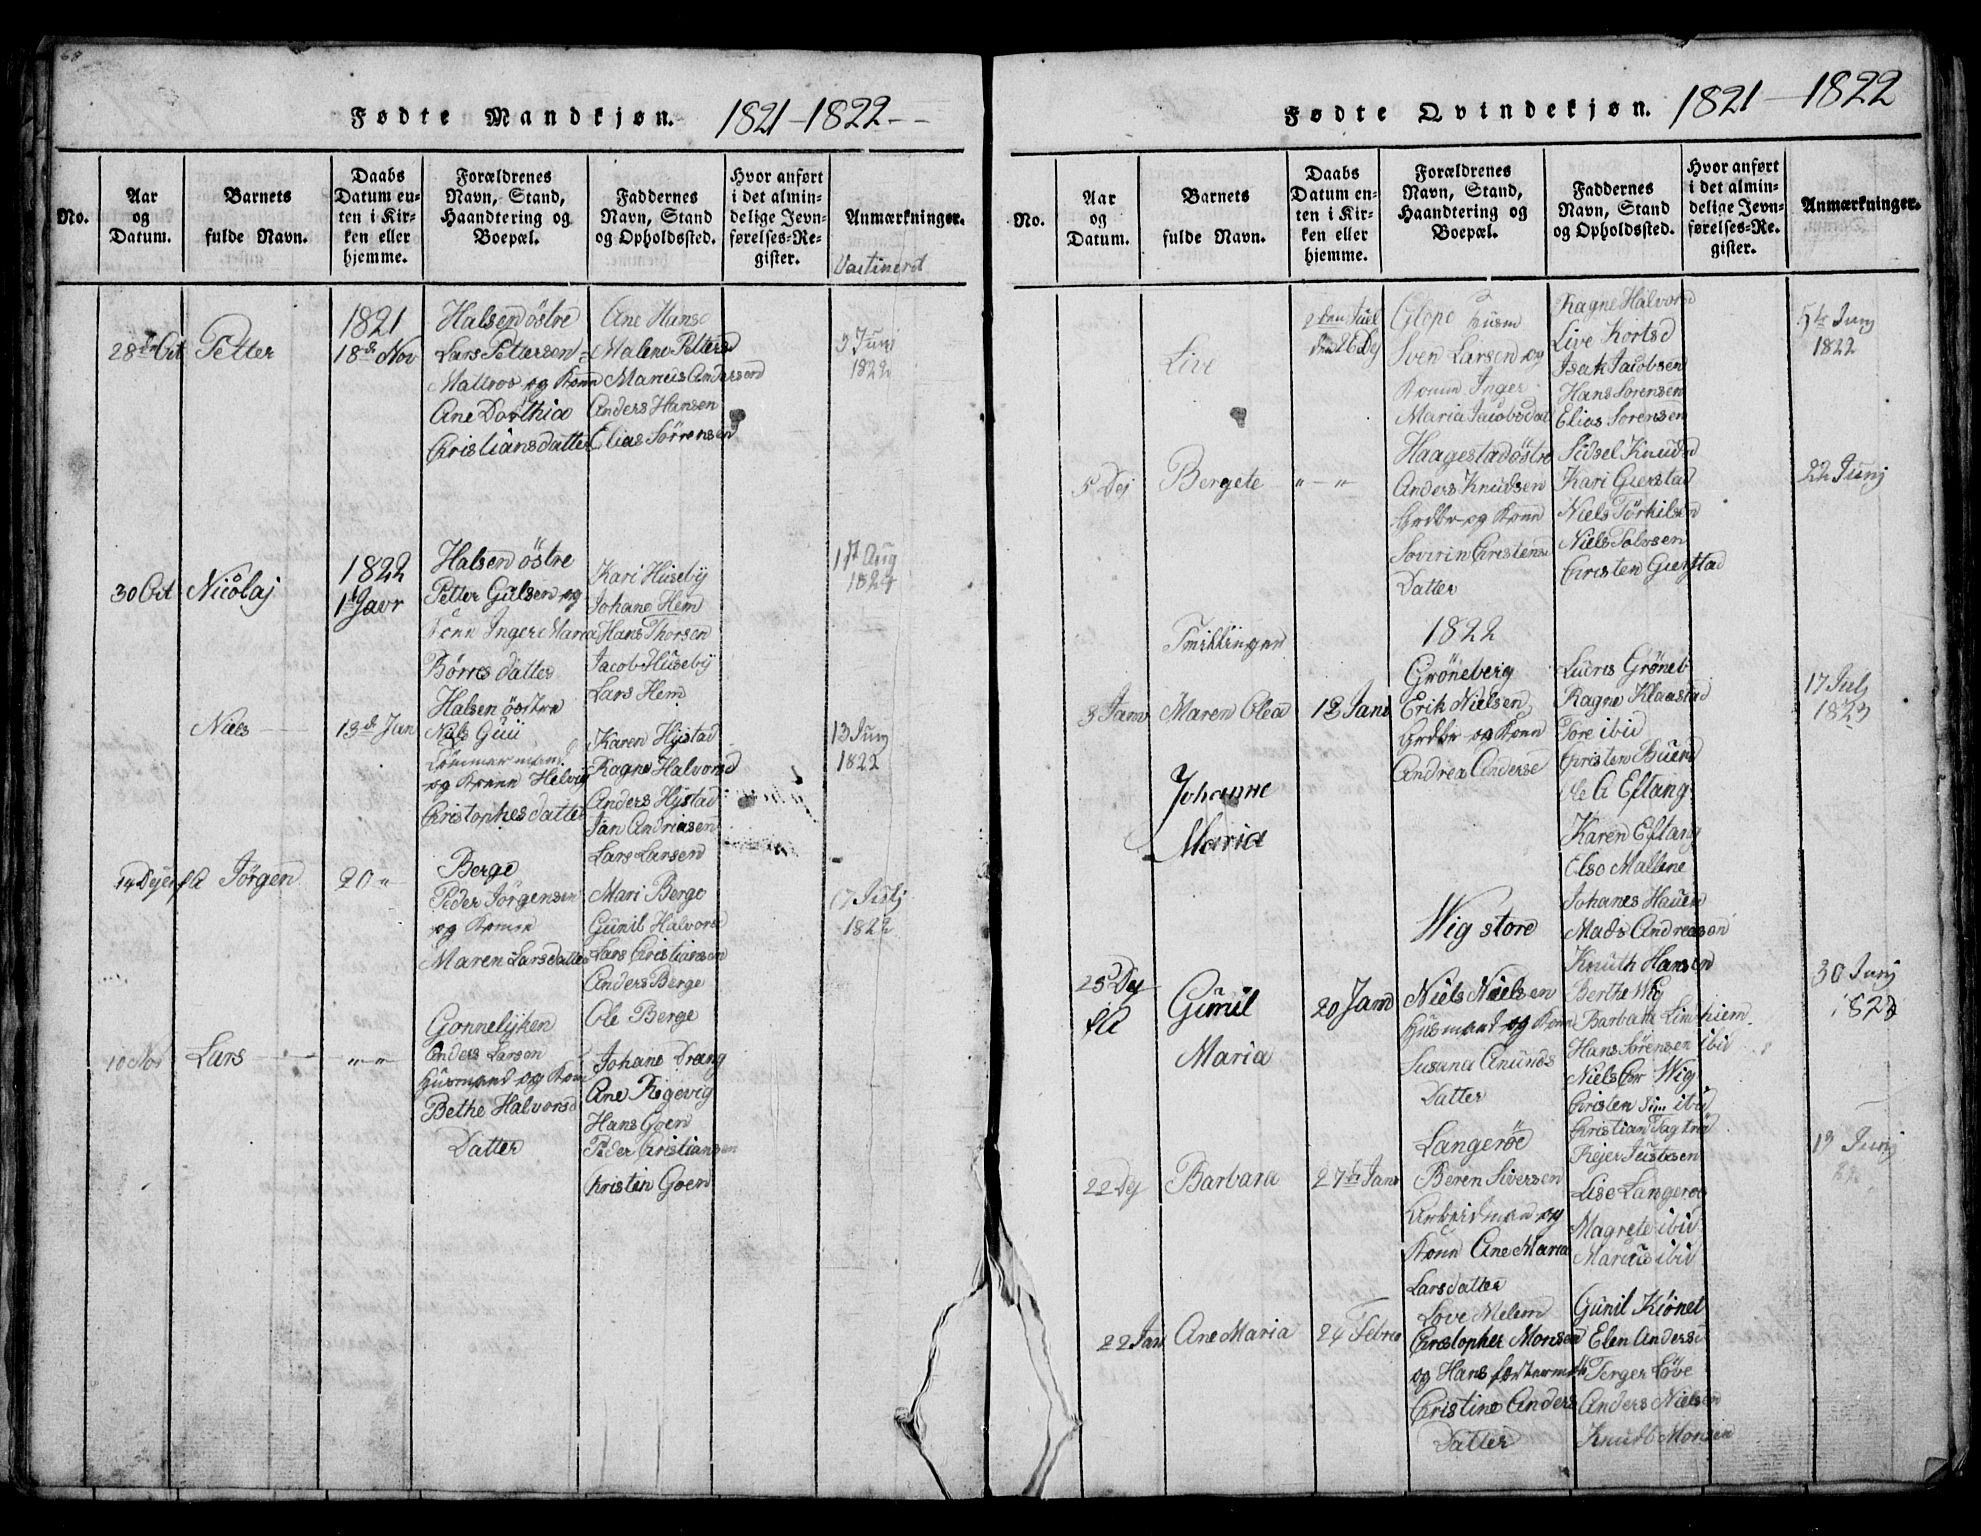 68
Fødte Mandkjøn. 1821-1822--
No.
Aar
og
Datum.
Barnets
fulde Navn.
Daabs
Datum en-
ten i Kir-
ken eller
hjemme.
Forældrenes
Navn, Stand,
Haandtering og
Boepæl.
Faddernes
Navn, Stand
og Opholdssted.
Hvor anført
i det almin-
delige Jevn-
førelses-Re-
gister.
Anmærkninger.
Vaccinerd
28de Oct
Petter
1821
18de Nov
Halsen östre
Lars Pettersen
Matros og Konn
Ane Dorthia
Christiansdatter
Ane Hansd
Malene Pettersd
Marius Anderssen
Anders Hansen
Elias Sörrensen
3 Junj
1822
30 Oct
Nicolaj
1822
1st Javr
Halsen östre
Petter Gulsen og
Konn Inger Maria
Börres datter
Kari Huseby
Johane Hem
Hans Thorsen
Jacob Huseby
Lars Hem
1st Aug
1824
Niels
13de Jan
Halsen östre
Niels
Tömmermand
og Konn Helvig
Christophersdatter
Karen Hystad
Ragne Halvorsd
Anders Hystad
Jan Andriasen
Lars Larsen
13 Junj
1822
14 Dej
Jörgen
20 "
Berge
Peder Jörgensen
og Konen
Maren Larsdatter
Mari Berge
Gunil Halvorsd
Lars Christiansen
Anders Berge
Ole Berge
17 Julj
1822
10 Nov
Lars
" - "
Gonnelyken
Anders Larsen
Husmand og Kone
Bethe Halvorsd
Datter
Johane Drang
Ane Rigevig
Hans Goen
Peder Christiansen
Christen Goen
Fødte Qvindekjøn. 1821-1822
No.
Aar
og
Datum.
Barnets
fulde Navn.
Daabs
Datum en-
ten i Kir-
ken eller
hjemme.
Forældrenes
Navn, Stand,
Haandtering og
Boepæl.
Faddernes
Navn, Stand
og Opholdssted.
Hvor anført
i det almin-
delige Jevn-
førelses-Re-
gister.
Anmærkninger.
Live
2den Juel
26 Dej
Husm
Sven Larsen og
Konen Inger
Maria Jacobsdat
Ragne Halvorsd
Live Kortsd
Isak Jacobsen
Hans Sorensen
Elias Sorensen
5te Junj
1822
5 Dej
Bergete
" - "
Haagestad östre
Anders Knudsen
Grdbr og Konn
Soverin Christens
Datter
Sidsel Knudsd
Kari Gierstad
Niels Törkilsen
Niels Tolvsen
Christen Gierstad
22 Junj
Tvillinger
1822
3 Janv
Maren Olea
12 Janv
Gröneberg
Erik Nielsen
Grdbr og Konn
Andrea Anderse
Johanne
Maria
Ludris Gröneb
Ragne Klaastad
Tore ibid
Christen Buen
Ole A Eftang
Karen Eftang
Else Mallene
Johanes Hauen
Mads Andreasen
Knuth Hansen
17 Julj
1823
25 Dej
Gunil
Maria
20 Janv
Wig store
Niels Nielsen
Husmand og Konn
Susana Amunds
Datter
Berthe Wig
Barbara Lindhiem
Hans Sörensen ibid
Niels Chr Wig
Christen Sim ibid
30 Junj
1822
22 Dej
Barbara
27de Janv
Langeröe
Beren Siversen
Arbeidmand og
Konn Ane Maria
Larsdatter
Christian Tagtrod
Rejer Justesen
Lise Langeröe
Magrete ibid
Marcus ibid
19 Junj
22 Jan
Ane Maria
24 Febru
Love Melem
Christopher Monsen
og Hans
Christine Anders
Datter
Gunil Kiönet
Elen Anderse
Terger Löve
Anders Nielsen
Knudt Monsen